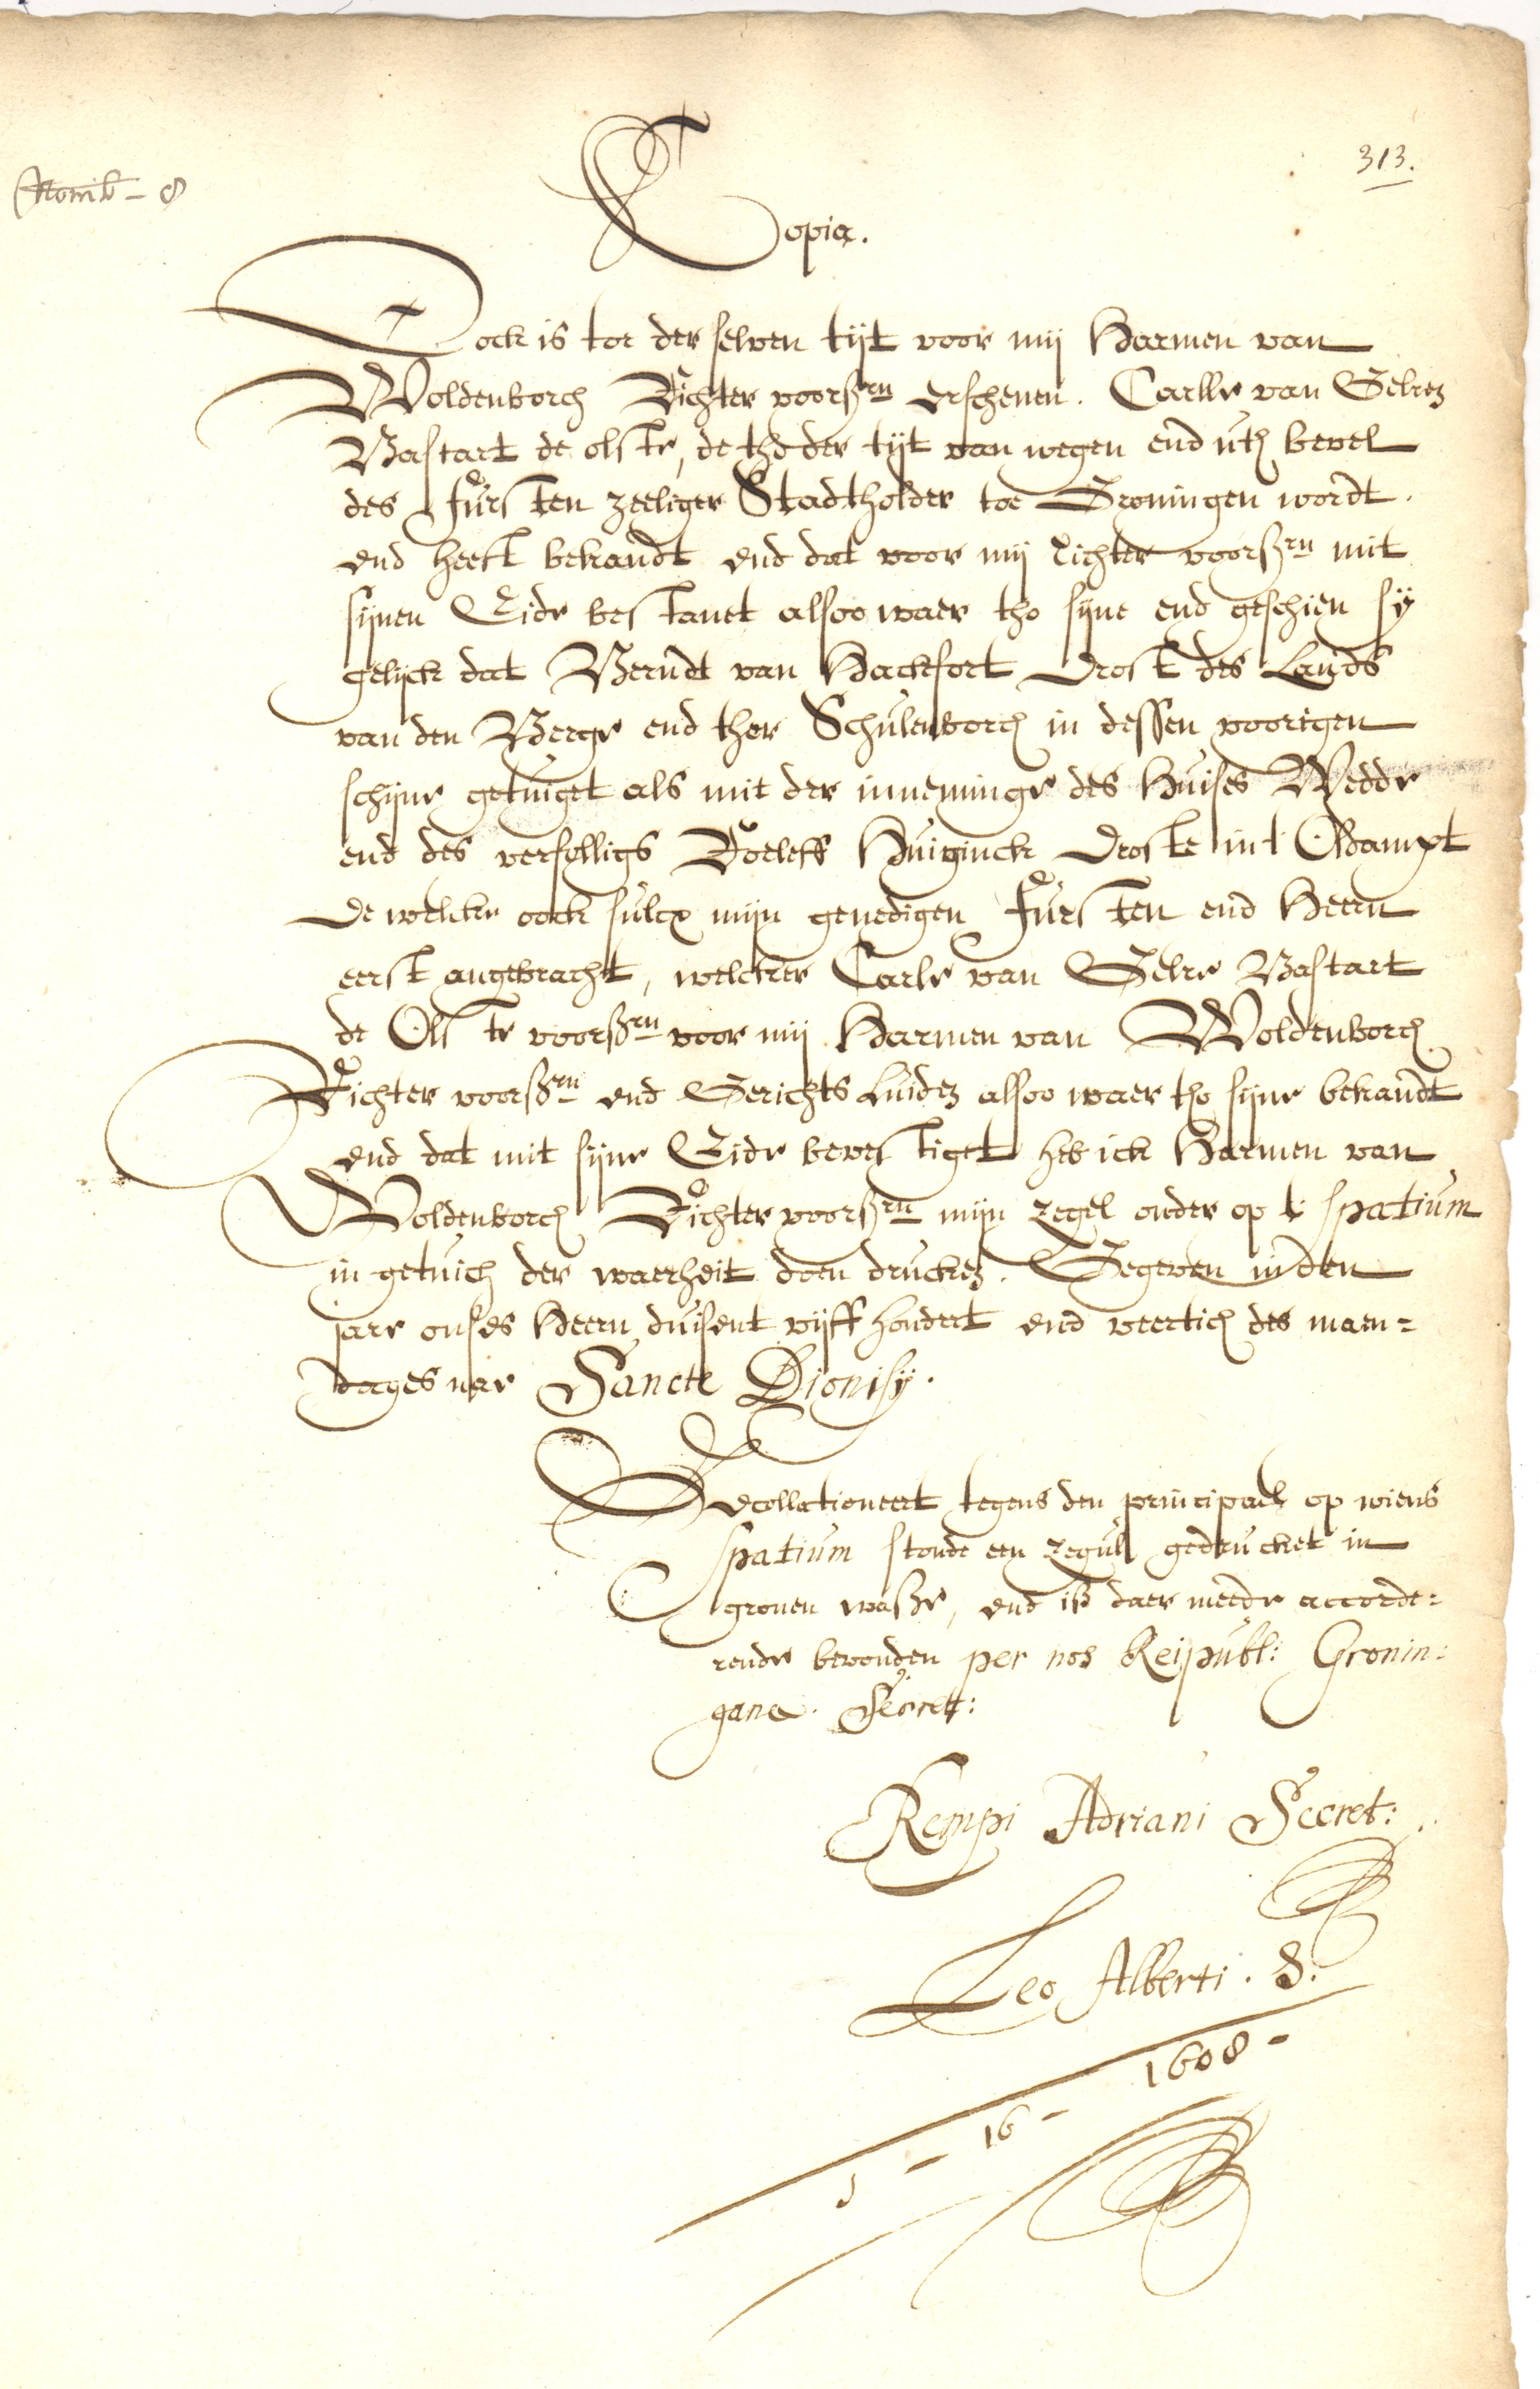 Numb - 8
313.
Copia.
Oock is toe der selven tijt voor mij Harmen van
Woldenborch Richter voorß.en erschenen. Carlle van Gelren
Bastart de olste, de tho der tijt van wegen end uth bevel
des Fursten zeeliger Stadtholder toe Groningen wordt.
end heeft bekandt end dat voor mij Richter voorß.en mit
sijnen Eide bestavet alsoo waer tho sijne end geschien sij
gelijck dat Berndt van Hackfort Drost des Lands
van den Berge end ther Schulenborch in dessen voorigen
schijne getuiget als mit der inneminge des Huises Wedde
end des verfolligs Roeleff Huiginck Droste int Oldampt
De welcke oock sulcx mijn genedigen Fursten end Heern
eerst angebracht, welcker Carle van Gelre Bastart
de Olste voorß.en voor mij Harmen van Woldenborch
Richter voorß.en end Gerichts Luiden alsoo waer tho sijne bekandt
end dat mit sijne Eide bevestiget heb ick Harmen van
Woldenborch Richter voorß.en mijn zegel onder op t spatium
in getuich der waerheit doen drucken. Gegeven in den
jare onses Heern duisent vijff hondert end veertich des maen=
dages nae Sancte Dionisij.
Gecollationeert tegens den principael op wiens
spatium stonde een zegul gedrucket in
gronen wasße, end iß daer meede accorde=
rende bevonden per nos Reipubl: Gronin:
gane. Secret:
Rempi Adriani Secret:
Leo Alberti. S.
1608 -
16 -
5 -